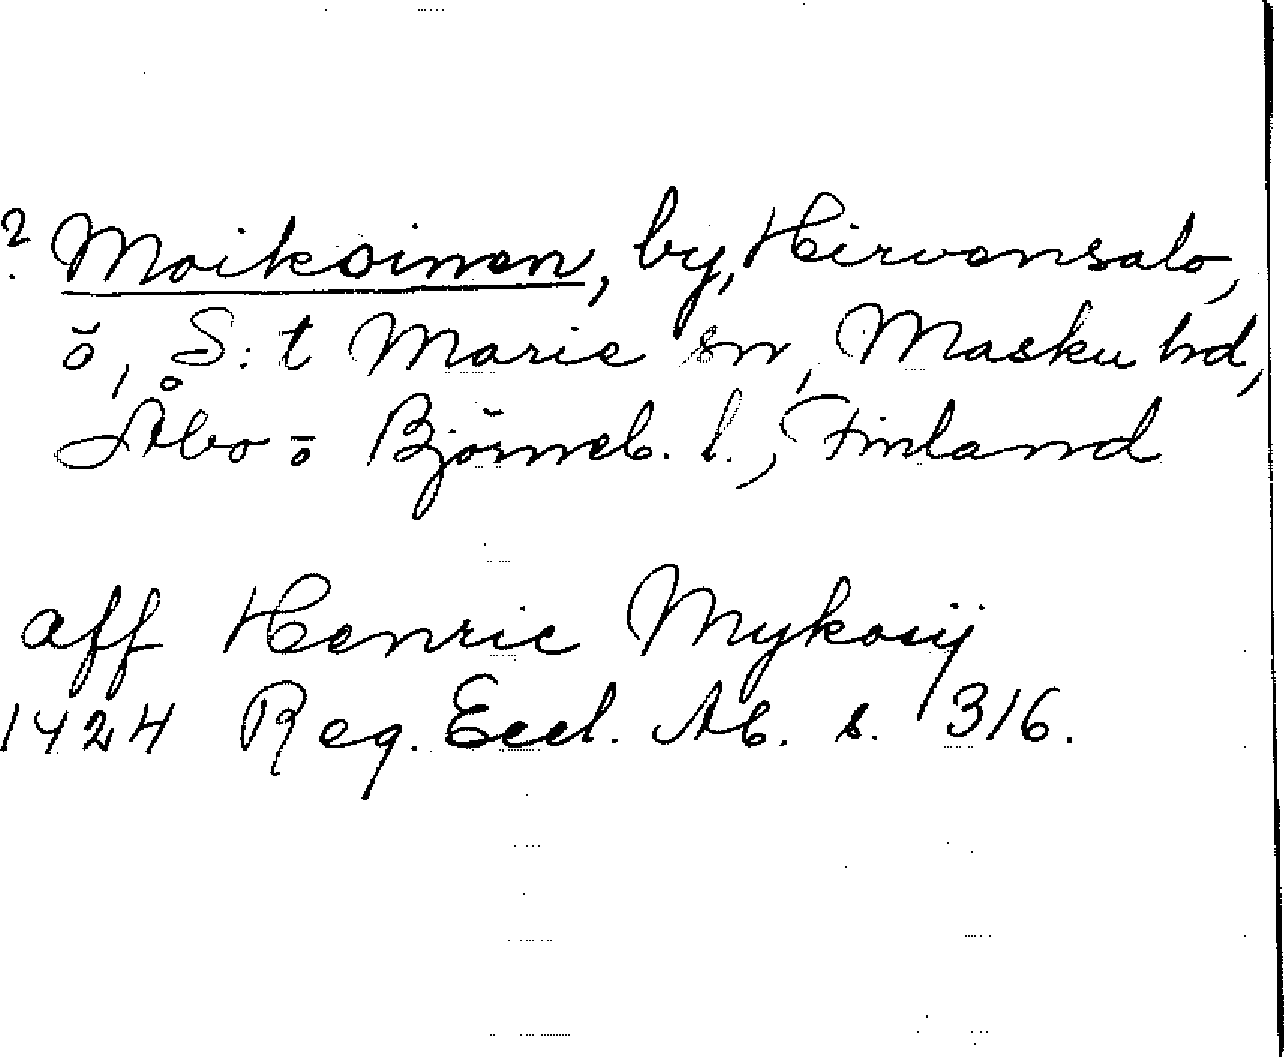 ? Moikoinen, by, Hirvensalo,
ö, S:t Marie sn, Masku hd,
Åbo o Björneb. l., Finland
aff Henric Mykoiij
1424 Reg. Eccl. Ab. s. 316.